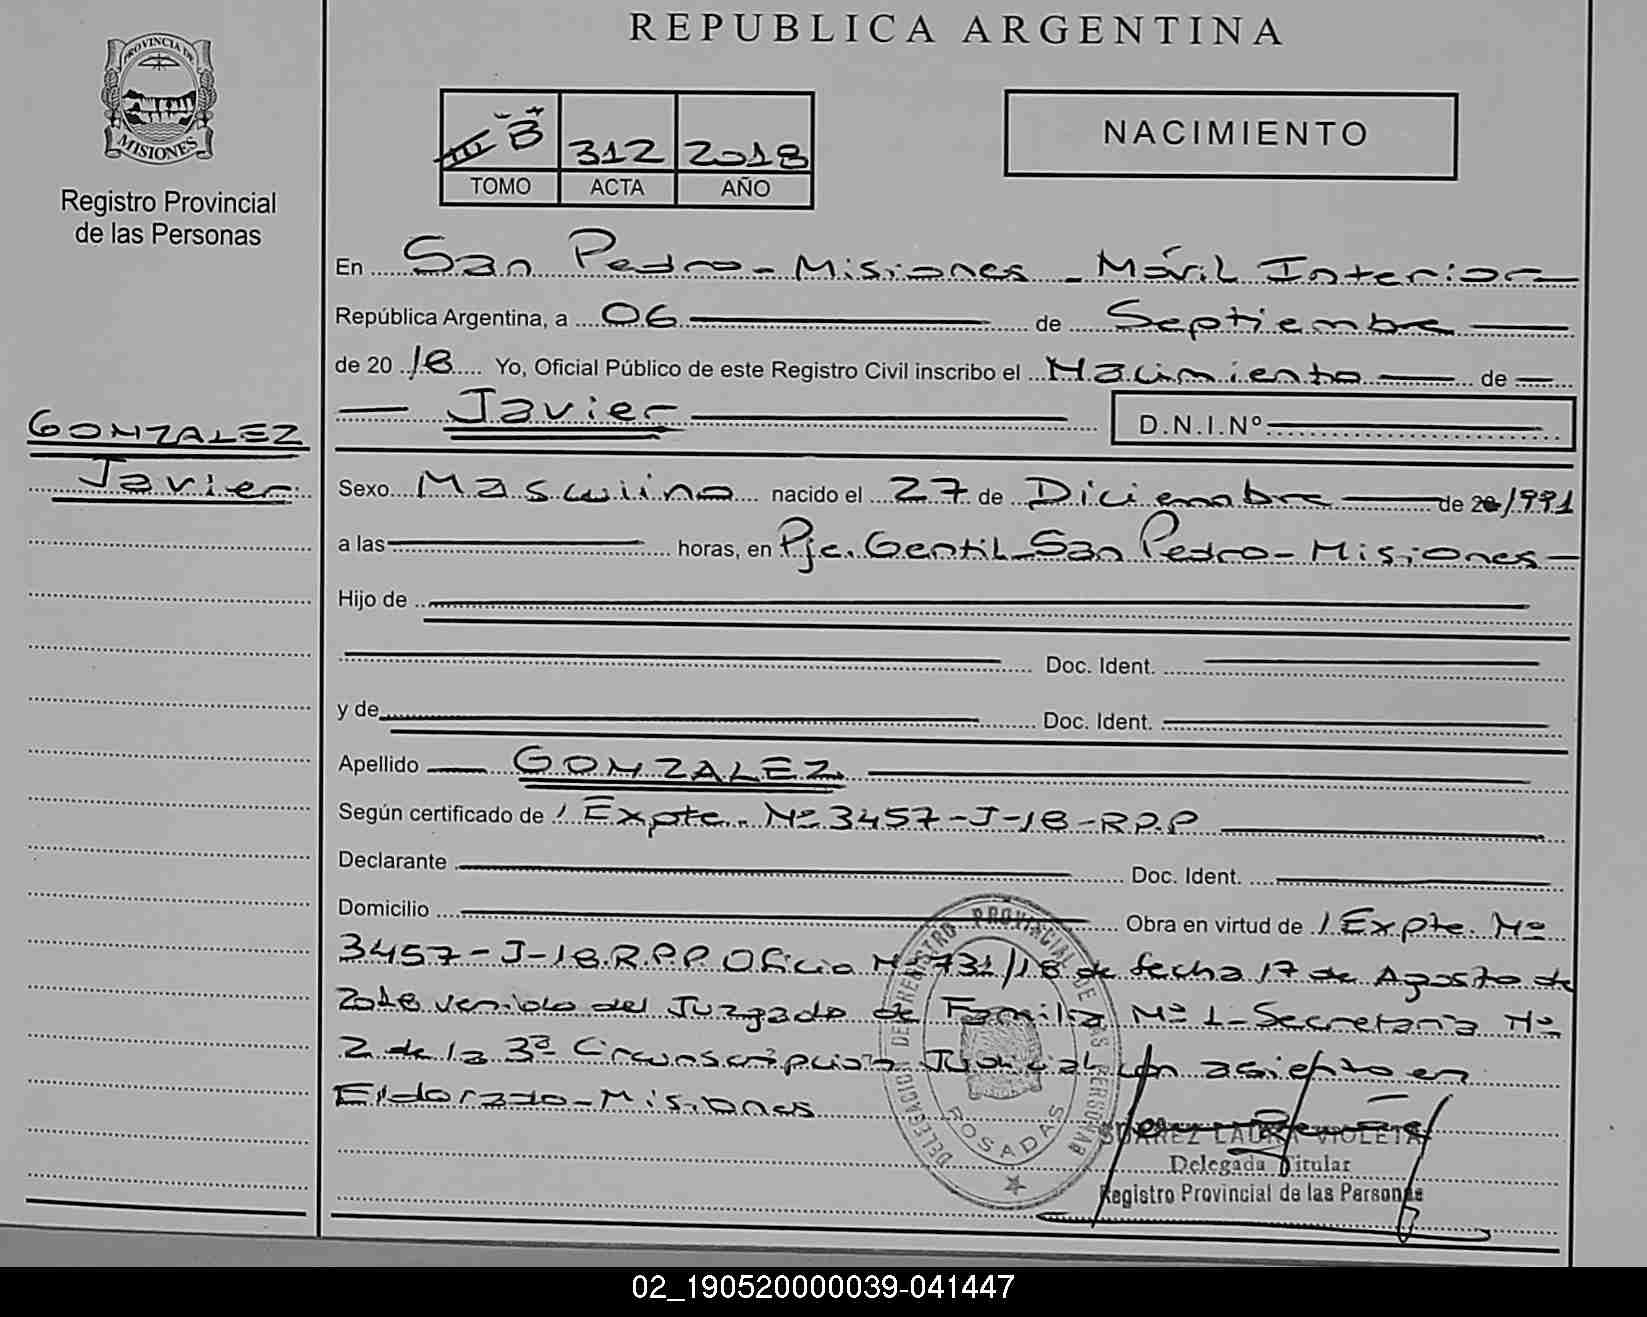 REPUBLICA ARGENTINA
PROVINCIA DE
MISIONES
Registro Provincial
de las Personas
B
312
2018
TOMO
ACTA
AÑO
NACIMIENTO
En San Pedro - Misiones - Móvil Interior
República Argentina, a 06 de Septiembre
de 2018 Yo, Oficial Público de este Registro Civil inscribo el Nacimiento de
Javier
D.N.I.Nº
GONZALEZ
Javier
Sexo Masculino nacido el 27 de Diciembre de 20/1991
a las horas, en Pje. Gentil - San Pedro - Misiones -
Hijo de
Doc. Ident.
y de
Doc. Ident.
Apellido GONZALEZ
Según certificado de / Expte. Nº 3457-J-18-R.P.P
Declarante Doc. Ident.
Domicilio Obra en virtud de / Expte. Nº
3457-J-18.R.P.P. Oficio Nº 731/18 de fecha 17 de Agosto de
2018 venido del Juzgado de Familia Nº 1 - Secretaria Nº
2 de la 3ª Circunscripción Judicial con asiento en
Eldorado - Misiones
DELEGACION DEL REGISTRO PROVINCIAL DE LAS PERSONAS
POSADAS
SUAREZ LAURA VIOLETA
Delegada Titular
Registro Provincial de las Personas
02_190520000039-041447